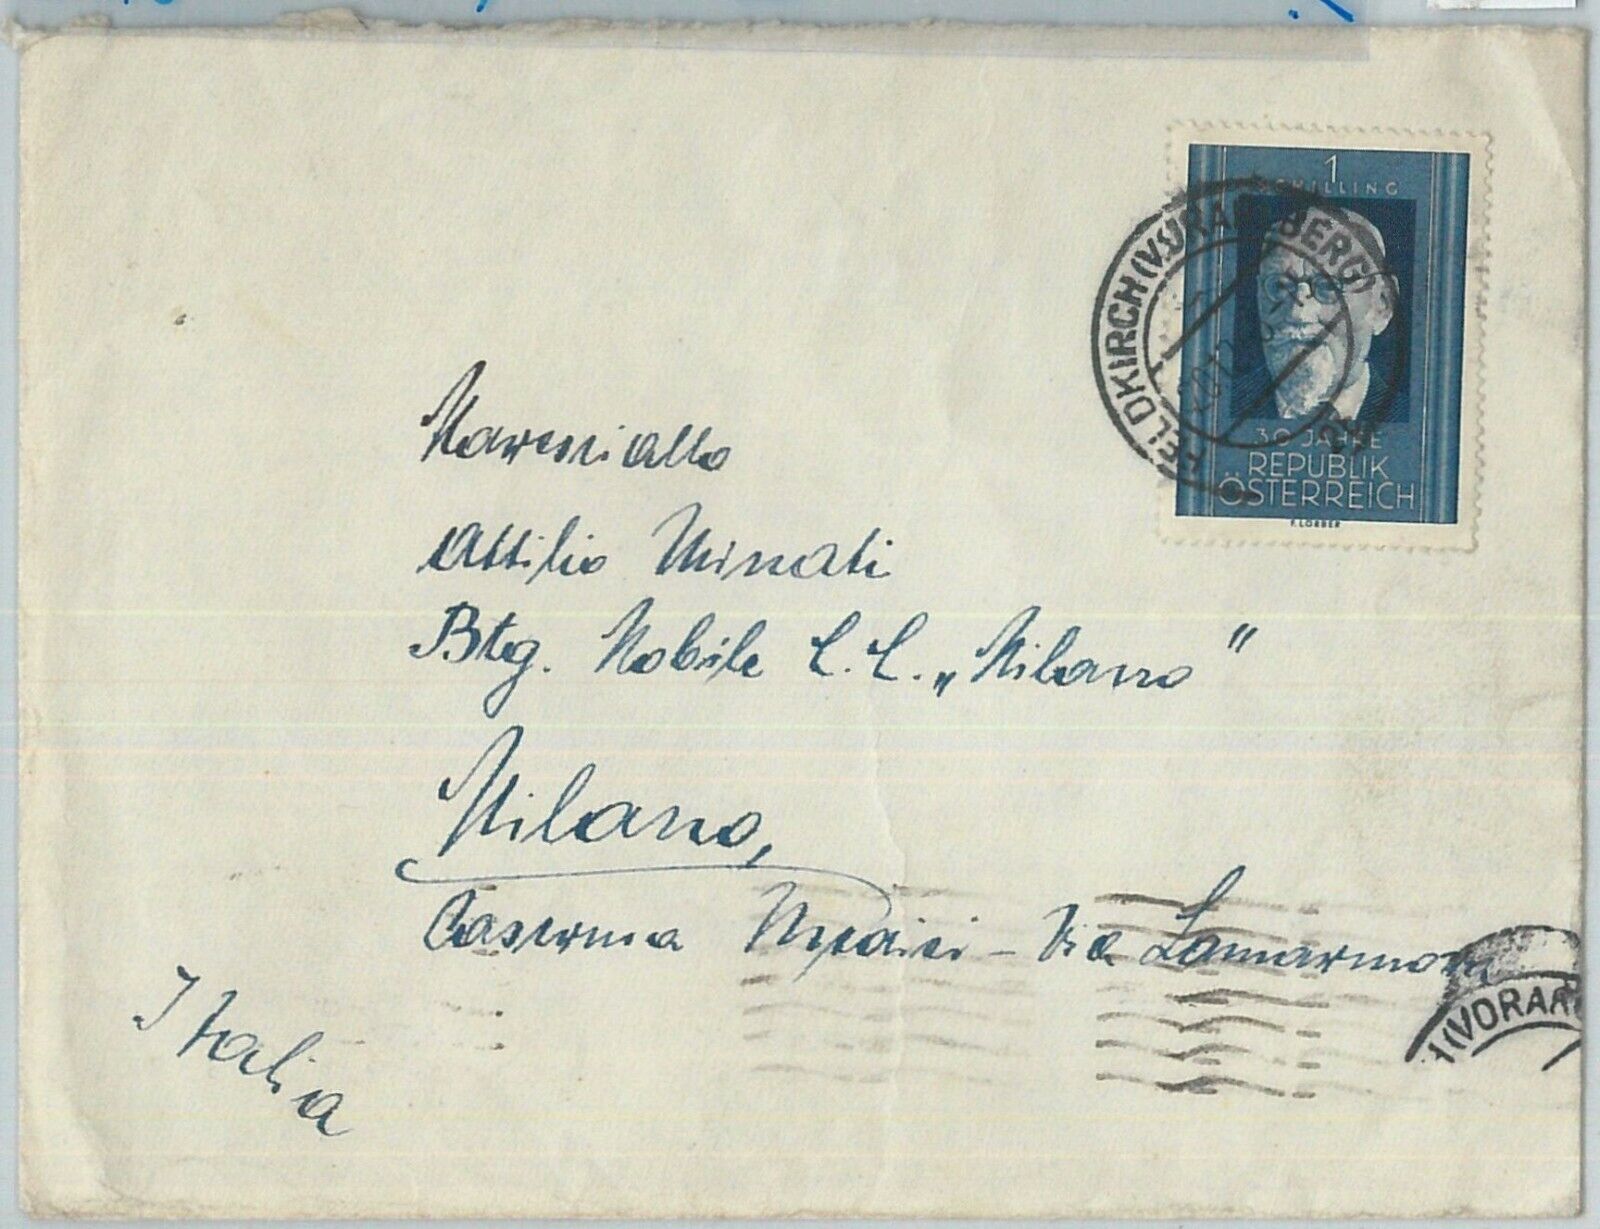 1
SCHILLING
30 JAHRE
REPUBLIK
ÖSTERREICH
F. LORBER
FELDKIRCH (VORARLBERG)
Maresciallo
Attilio Minati
Btg. Mobile C.C. „Milano"
Milano,
Caserma Medici - Via Lamarmora
Italia
(VORAR